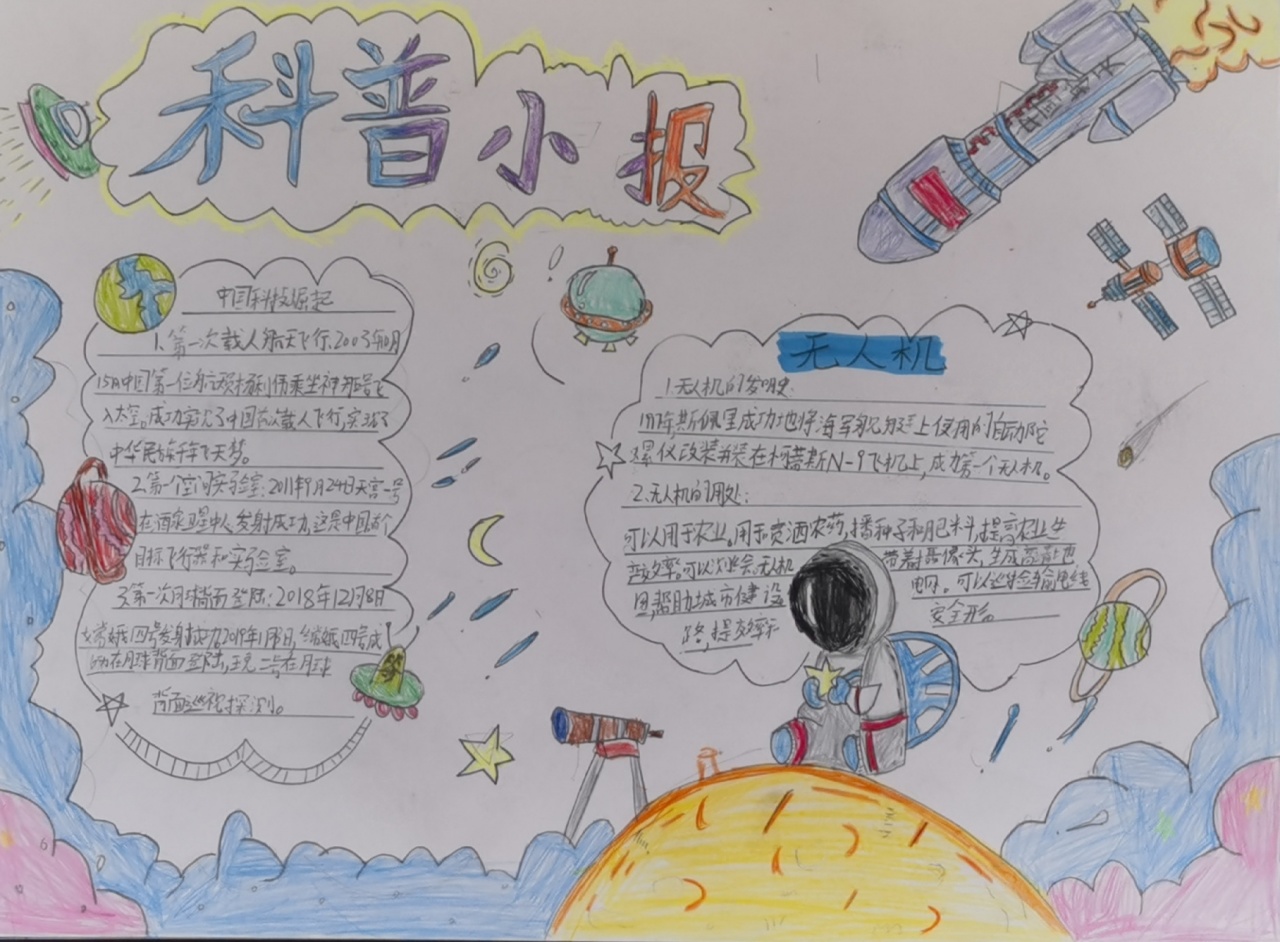 科普小报
中国科技崛起
1、第一次载人航天飞行:2003年10月
15日中国第一位航天员杨利伟乘坐神舟五号飞
入太空。成功实现了中国首次载人飞行,实现了
中华民族千年飞天梦。
2、第一个空间实验室:2011年9月24日天宫一号
在酒泉卫星中心发射成功,这是中国首个
目标飞行器和实验室。
3、第一次月球背面登陆:2018年12月8日
嫦娥四号发射成功2019年1月3日,嫦娥四号成
功在月球背面登陆,玉兔二号在月球
背面巡视探测。
无人机
1.无人机的发明史:
斯佩里成功地将海军舰艇上使用的自动陀
螺仪改装安装在柯蒂斯N-9飞机上,成为第一个无人机。
2.无人机的用处:
可以用于农业。用于喷洒农药,播种子和肥料,提高农业生
产效率。可以 无人机 带着摄像头,生成高
帮助城市建设 可以巡检输电线
路,提高效率和 安全形。